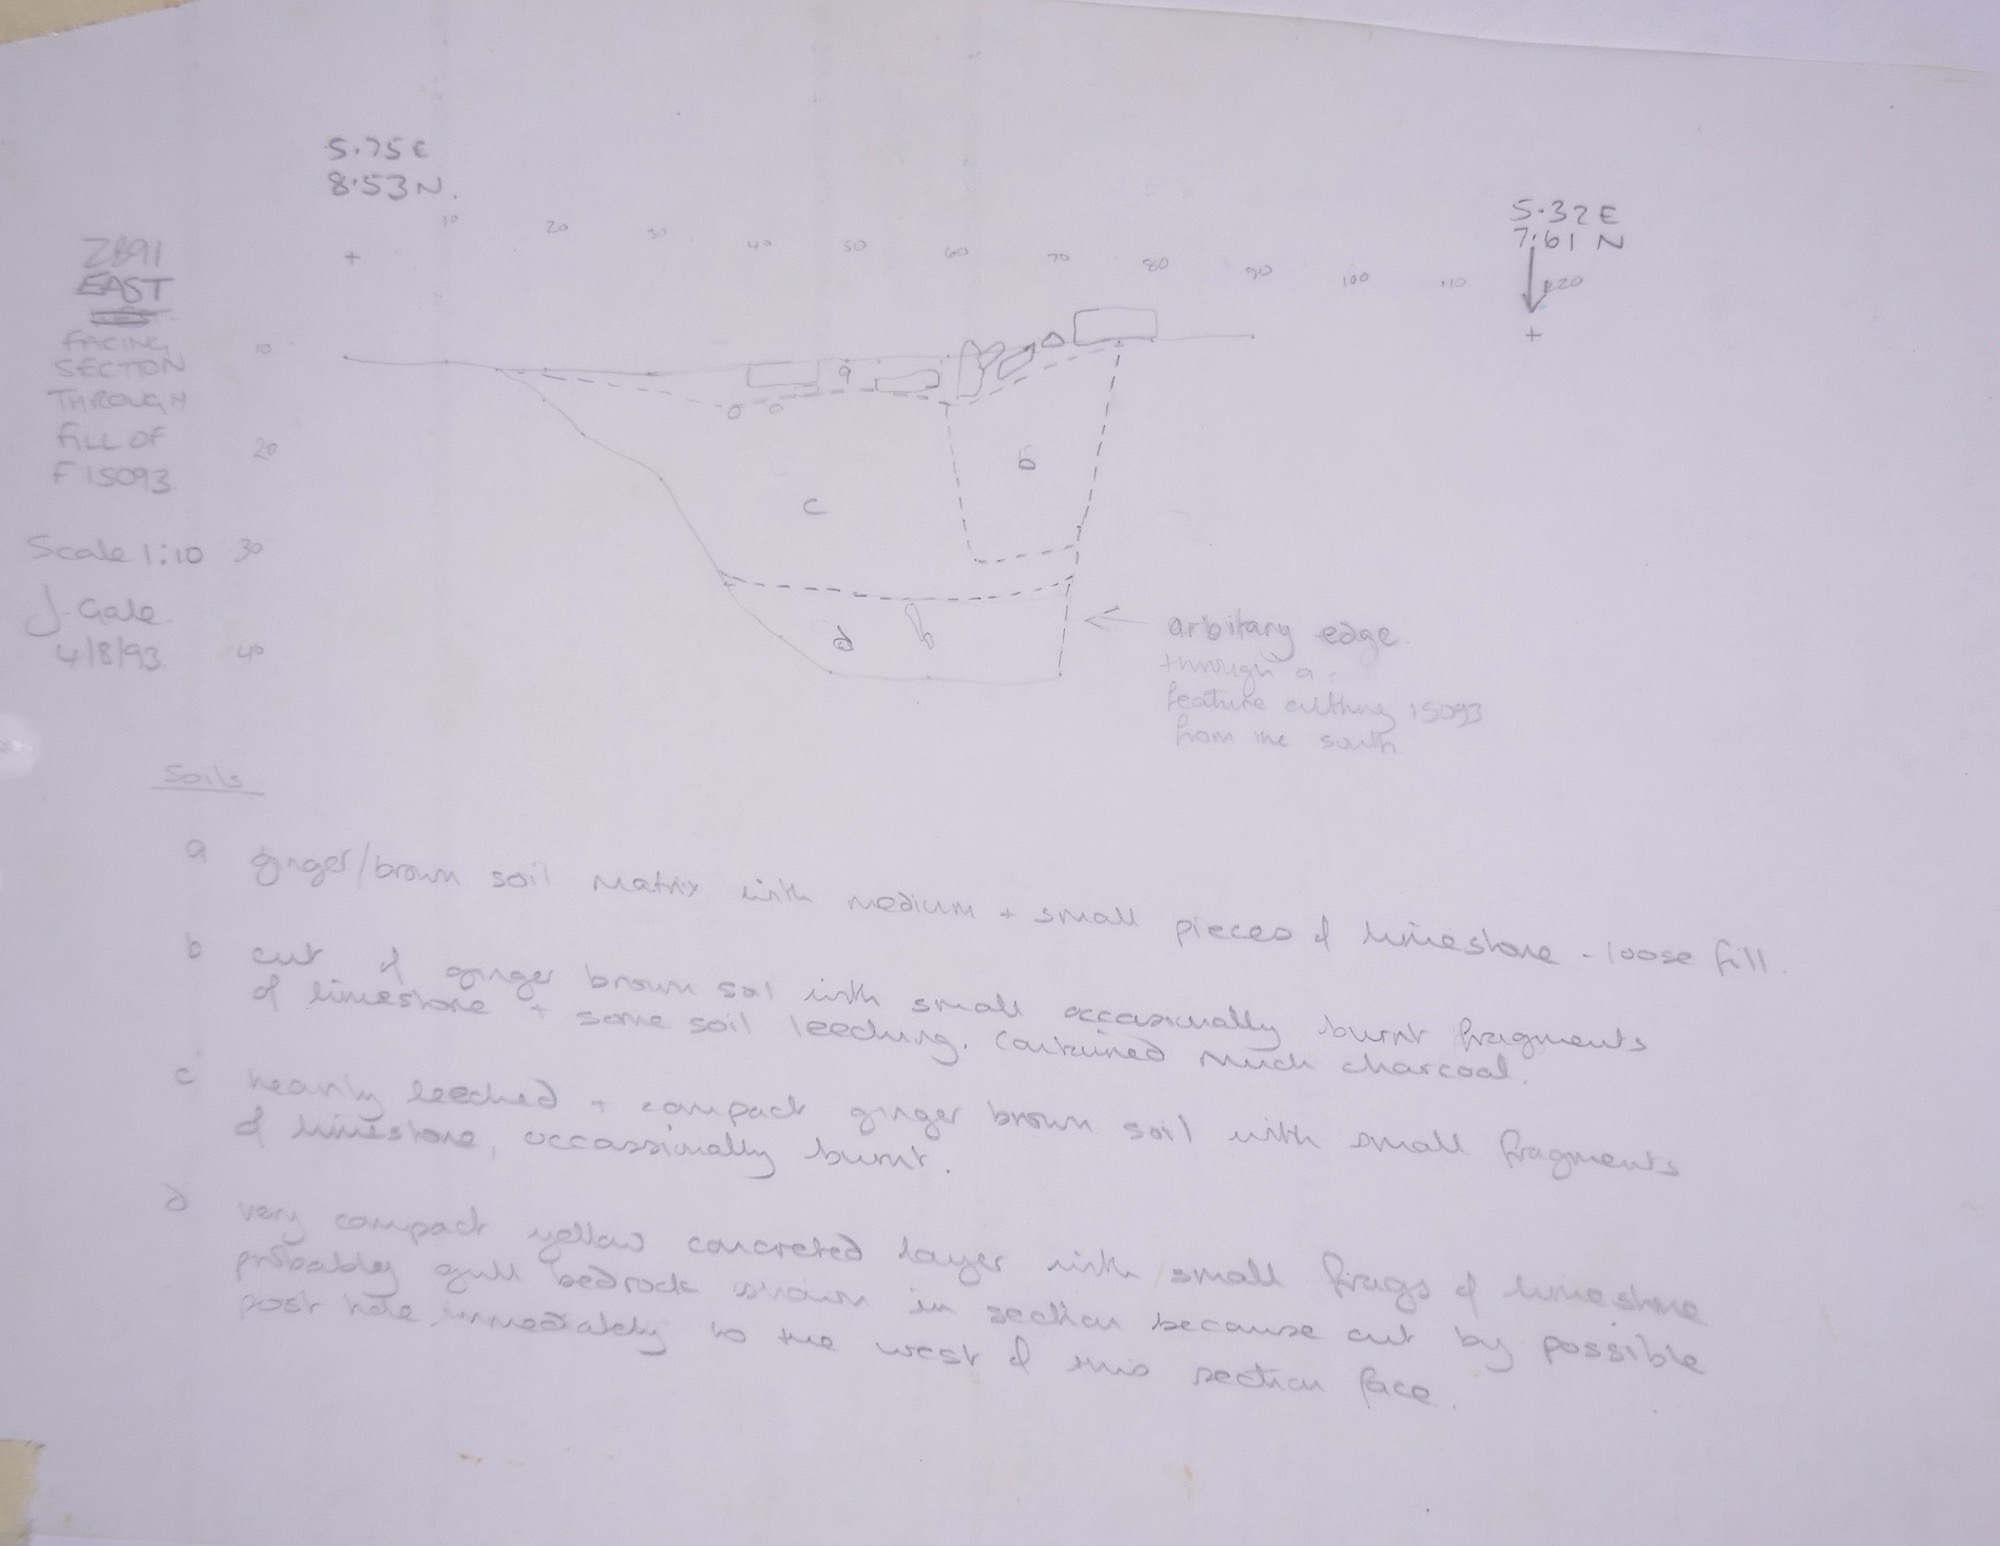 5.75E
8.53N.
5.32E
7.61 N
10 20 30 40 50 60 70 80 90 100 110 120
+
+
Z891
EAST
FACING
SECTION
THROUGH
FILL OF
F15093
Scale 1:10
J. Gale
4/8/93
10
20
30
40
a
b
c
d
arbitary edge
through a
feature cutting 15093
from the south
Soils
a ginger/brown soil matrix with medium + small pieces of limestone - loose fill.
b cut of ginger brown soil with small occasionally burnt fragments
of limestone + some soil leeching. Contained much charcoal.
c heavily leeched + compact ginger brown soil with small fragments
of limestone, occassionally burnt.
d very compact yellow concreted layer with small frags of limestone
probably gull bedrock shown in section because cut by possible
post hole immediately to the west of this section face.